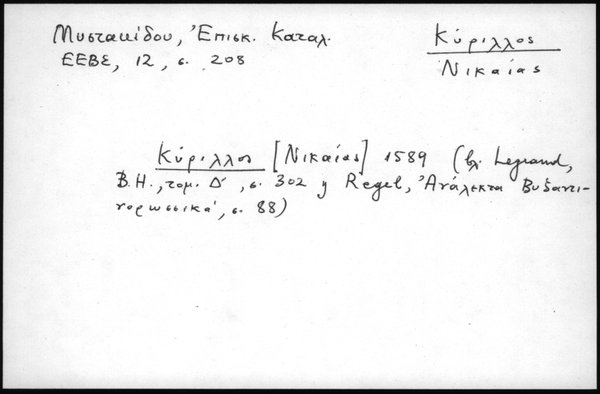 Μυστακίδου, Ἐπισκ. Καταλ.
ΕΕΒΣ, 12, σ. 208
Κύριλλος
Νικαίας
Κύριλλος [Νικαίας] 1589 (βλ. Legrand,
B.H., τομ. Δ´, σ. 302 ἤ Regel, Ἀνάλεκτα Βυζαντι-
νορωσσικά, σ. 88)